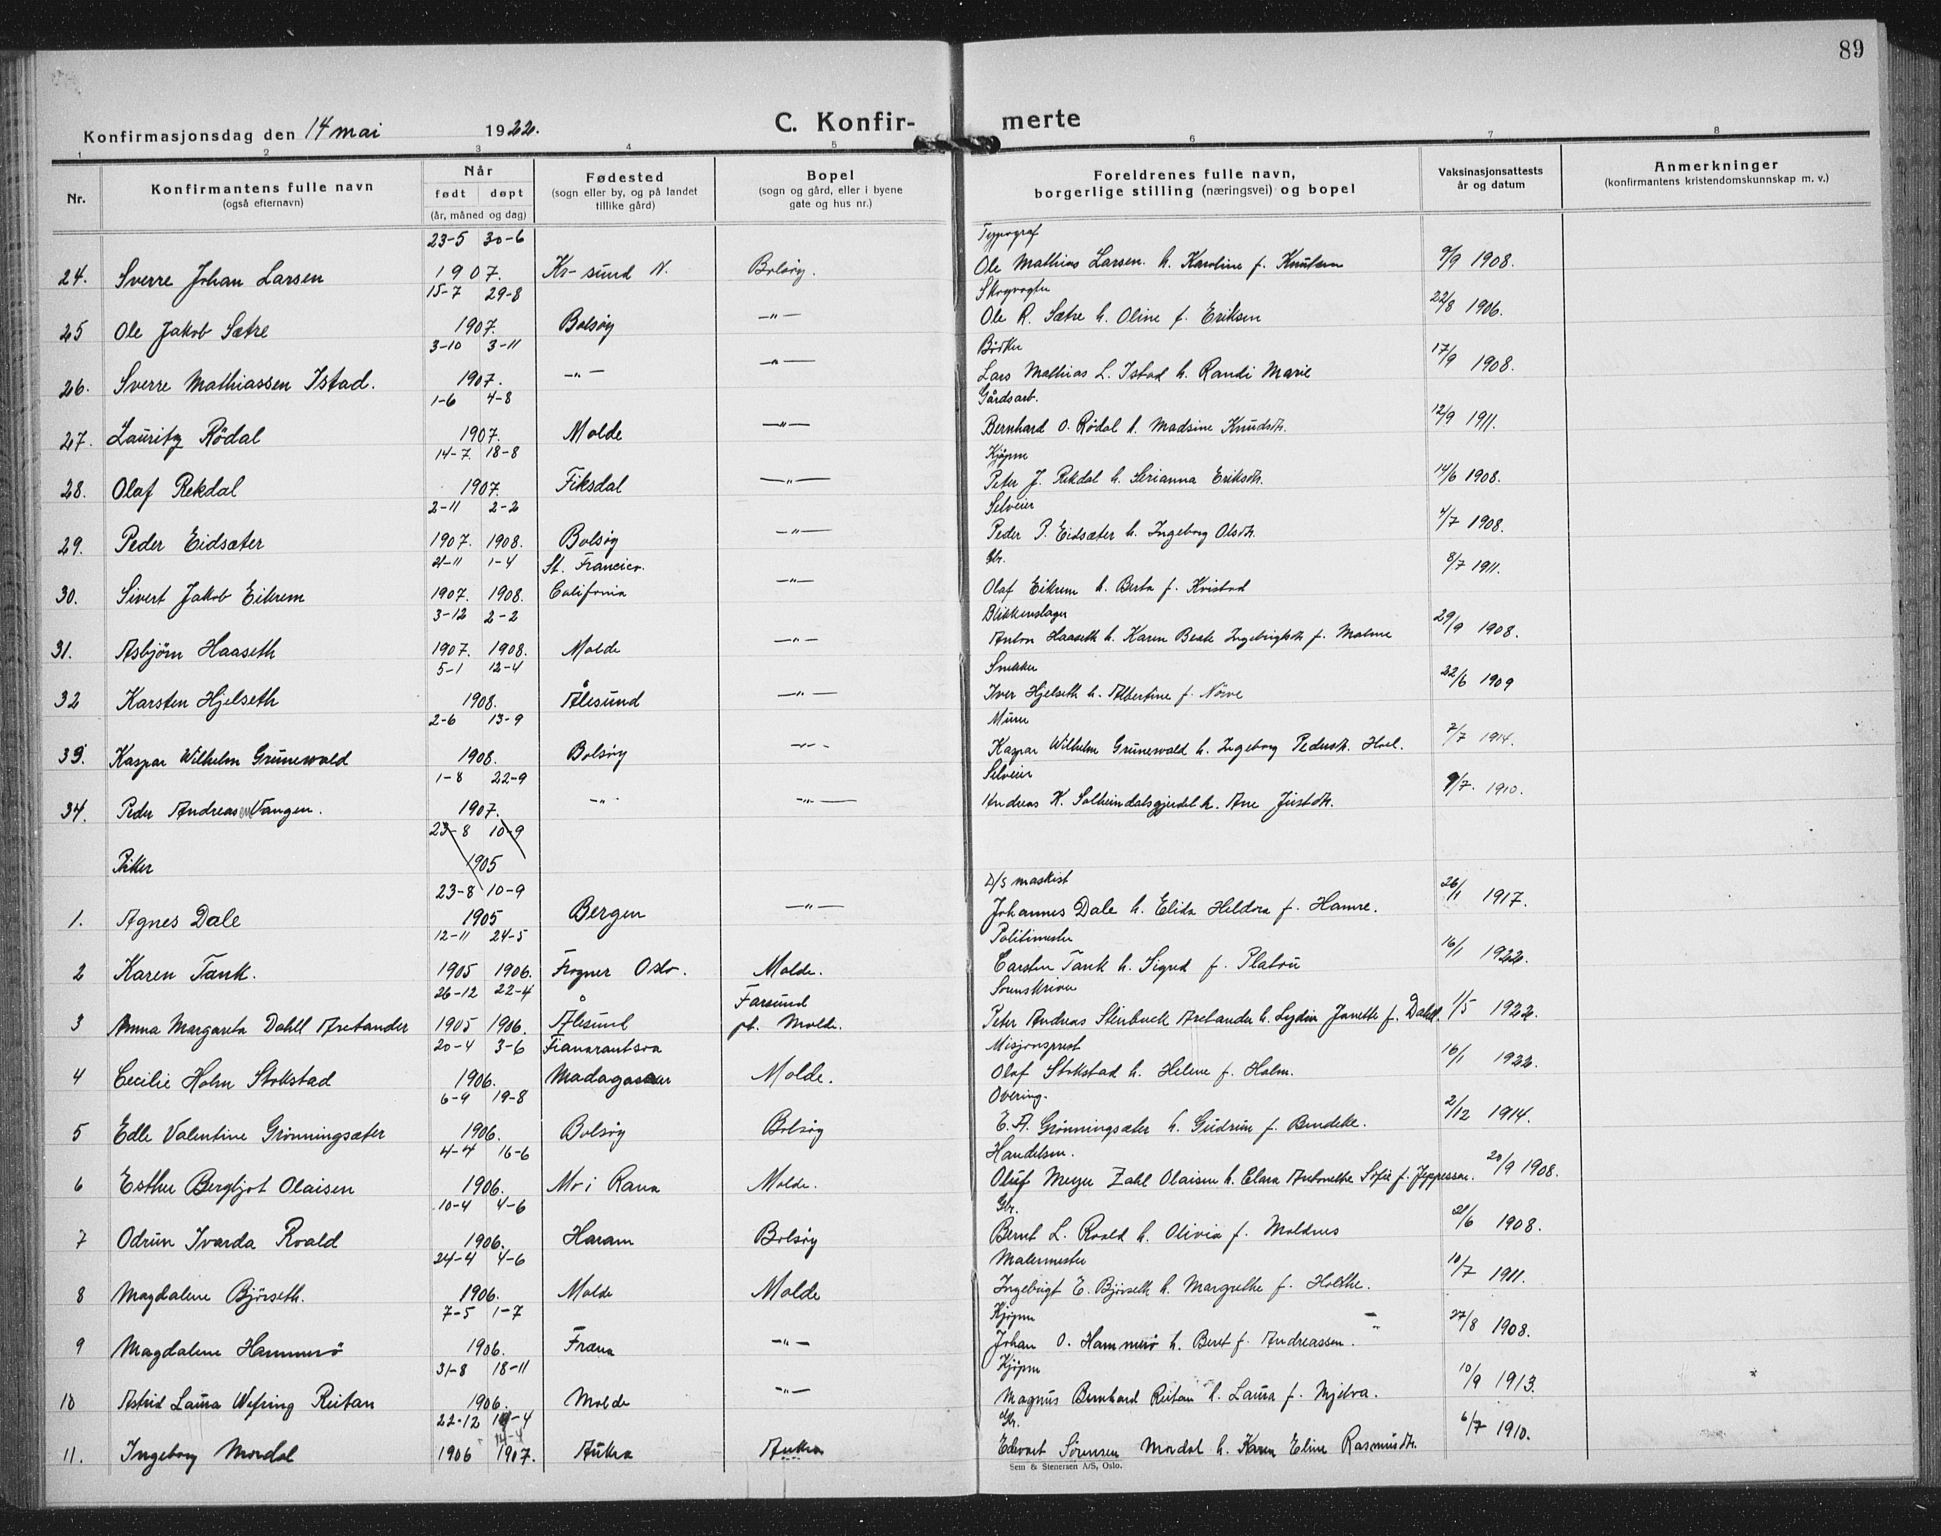 89
Konfirmasjonsdag den 14 mai 1922.
C. Konfir- merte
1 2 3 4 5 6 7 8
Nr.
Konfirmantens fulle navn
(også efternavn)
Når
født døpt
(år, måned og dag)
Fødested
(sogn eller by, og på landet
tillike gård)
Bopel
(sogn og gård, eller i byene
gate og hus nr.)
Foreldrenes fulle navn,
borgerlige stilling (næringsvei) og bopel
Vaksinasjonsattests
år og datum
Anmerkninger
(konfirmantens kristendomskunnskap m. v.)
23-5 30-6 Typograf
24. Sverre Johan Larsen 1907. Kr-sund N. Bolsøy. Ole Mathias Larsen h. Karoline f. Knutsen 9/9 1908.
15-7 29-8 Skogvogter
25 Ole Jakob Sætre 1907. Bolsøy -"- Ole R. Sætre h. Oline f. Eriksen 22/8 1906.
3-10 3-11 Bödker
26. Sverre Mathiassen Istad. 1907. -"- -"- Lars Mathias L. Istad h. Randi Marie 17/9 1908.
1-6 4-8 Gårdsarb.
27. Lauritz Rödal 1907. Molde -"- Bernhard O. Rødal h. Madsine Knudsdtr. 12/9 1911.
14-7 18-8 Kjøpm
28. Olaf Rekdal 1907. Fiksdal -"- Peter J. Rekdal h. Serianna Eriksdtr. 14/6 1908.
2-11 2-2 Selveier
29. Peder Eidsæter 1907. 1908. Bolsøy -"- Peder P. Eidsæter h. Ingeborg Olsdtr. 4/7 1908.
21-11 1-4 St. Francico. Gbr.
30. Sivert Jakob Eikrem 1907. 1908. California -"- Olaf Eikrem h. Berta f. Kvistad 8/7 1911.
3-12 2-2 Blikkenslager
31. Asbjørn Haaseth 1907. 1908. Molde -"- Anton Haaseth h. Karen Beate Ingebrigtsdtr f. Malme 29/9 1908.
5-1 12-4 Snekker
32 Karsten Hjelseth 1908. Ålesund -"- Iver Hjelseth h. Albertine f. Nörve 22/6 1909
2-6 13-9 Murer
33. Kaspar Wilhelm Grünewald 1908. Bolsøy -"- Kaspar Wilhelm Grünewald h. Ingeborg Pedersdtr. Hoel. 7/7 1914.
1-8 22-9 Selveier
34. Peder Andreas Vangen. 1907. -"- -"- Andreas K. Solheimdalsgjerdet h. Ane Justdtr. 9/7. 1910.
23-8 10-9
Piker 1905
23-8 10-9 D/S maskist
1. Agnes Dale 1905 Bergen -"- Johannes Dale h. Elida Heldora f. Hamre. 26/1 1917.
12-11 24-5 Politimester
2 Karen Tank. 1905 1906. Frogner Oslo. Molde. Carsten Tank h. Sigred f. Platou 16/1 1922.
26-12 22-4 Farsund Sorenskriver
3 Anna Margareta Dahll Arctander 1905 1906. Ålesund pt. Molde. Peter Andreas Stenbuck Arctander h. Lydia Janette f. Dahll. 1/5 1922.
20-4 3-6 Fianarantsoa Misjonsprest
4 Cecilie Holm Stokstad 1906. Madagascar Molde. Olaf Stokstad h. Helene f. Holm. 16/1 1922.
6-9 19-8 Overing.
5 Edle Valentine Grönningsæter 1906. Bolsøy Bolsøy E. A. Grönningsæter h. Gudrun f. Bendeke. 2/12 1914.
4-4 16-6 Handelsm.
6 Esther Bergljot Olaisen 1906. Mo i Rana Molde. Oluf Meyer Zahl Olaisen h. Clara Antonette Sofie f. Jeppessen. 20/9 1908.
10-4 4-6 Gbr.
7 Odrun Ivarda Roald 1906. Haram Bolsøy Bernt L. Roald h. Olivia f. Moldnes 21/6 1908.
24-4 4-6 Malermester
8 Magdalene Bjørseth. 1906. Molde Molde Ingebrigt E. Bjørseth h. Margrethe f. Holthe. 10/7 1911.
7-5 1-7 Kjøpm
9 Magdalene Hammerö 1906. Fræna -"- Johan O. Hammerö h. Beret f. Andreassen. 27/8 1908.
31-8 18-11 Kjøpm
10 Astrid Laura Wefring Reitan 1906. Molde -"- Magnus Bernhard Reitan h. Laura f. Mjelva. 10/9 1913.
22-12 14-4 Gbr.
14-4
11. Ingeborg Mordal 1906 1907. Aukra Aukra Edvart Sørensen Mordal h. Karen Eline Rasmusdtr. 6/7 1910.
Sem & Stenersen A/S, Oslo.